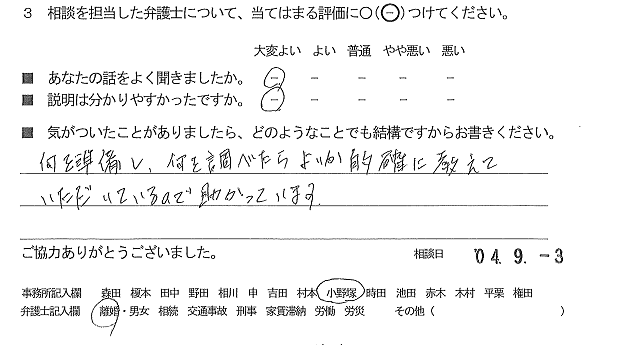 3 相談を担当した弁護士について、当てはまる評価に○(⊖)つけてください。
大変よい よい 普通 やや悪い 悪い
■ あなたの話をよく聞きましたか。 − − − − −
■ 説明は分かりやすかったですか。 − − − − −
■ 気がついたことがありましたら、どのようなことでも結構ですからお書きください。
何を準備し、何を調べたらよいか的確に教えて
いただいているので助かっています。
ご協力ありがとうございました。 相談日 '04 9. -3
事務所記入欄 森田 榎本 田中 野田 相川 申 吉田 村本 小野塚 時田 池田 赤木 木村 平栗 権田
弁護士記入欄 離婚・男女 相続 交通事故 刑事 家賃滞納 労働 労災 その他( )